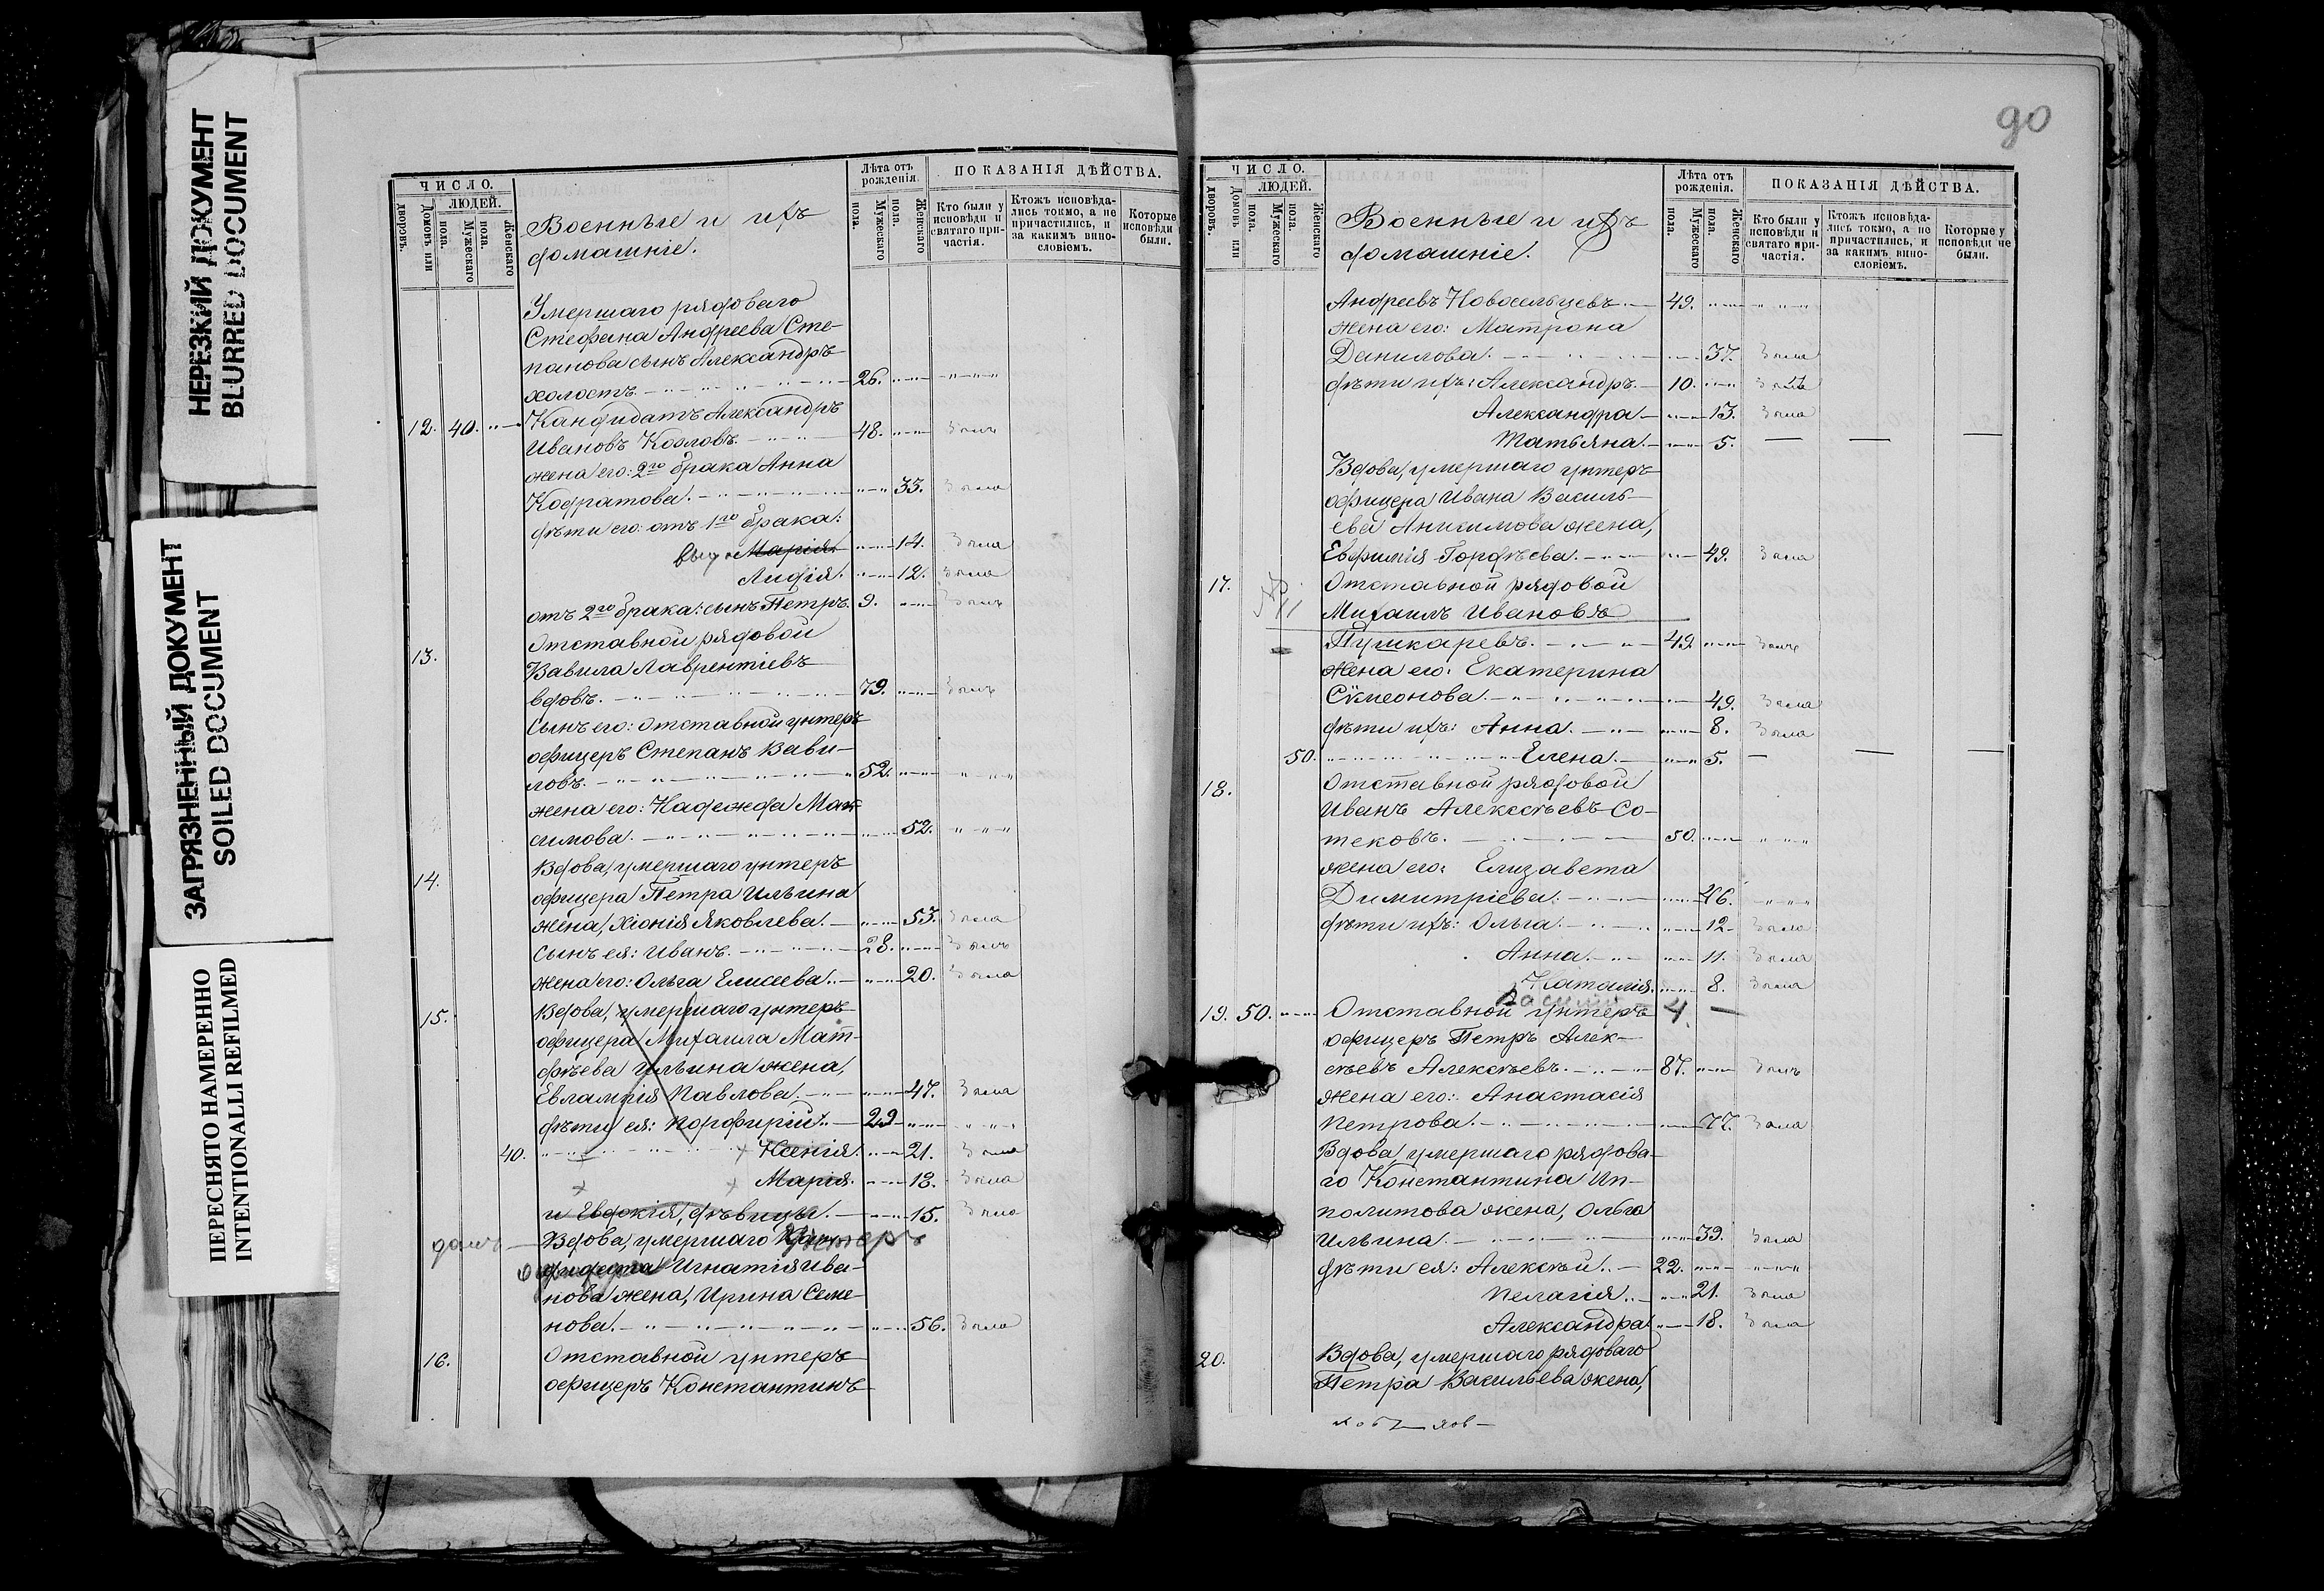 НЕРЕЗКИЙ ДОКУМЕНТ
BLURRED DOCUMENT
ЗАГРЯЗНЕННЫЙ ДОКУМЕНТ
SOILED DOCUMENT
ПЕРЕСНЯТО НАМЕРЕННО
INTENTIONALLI REFILMED
ЧИСЛО.
ЛЮДЕЙ.
Домовъ или дворовъ.
Мужескаго пола.
Женскаго пола.
Военные и ихъ
домашніе.
Лѣта отъ рожденія.
Мужескаго пола.
Женскаго пола.
ПОКАЗАНІЯ ДѢЙСТВА.
Кто были у исповѣди и святаго причастія.
Ктожъ исповѣдались токмо, а не причастились, и за какимъ винословіемъ.
Которые исповѣди были.
Умершаго рядоваго
Стефана Андреева Сте-
панова сынъ Александръ
холостъ. 26.
12. 40. Кандидатъ Александръ
Ивановъ Козловъ. 48. Былъ
жена его: 2го брака Анна
Кодратова. 33. Была
дѣти его: отъ 1го брака:
Марія. 14. Была
Лидія. 12. Была
отъ 2го брака: сынъ Петръ. 9. Былъ
13. Отставной рядовой
Вавила Лаврентіевъ
вдовъ. 79. Былъ
Сынъ его: Отставной унтеръ
офицеръ Степанъ Вави-
ловъ. 52.
жена его: Надежда Мак-
симова. 52.
14. Вдова, умершаго унтеръ
офицера Петра Ильина
жена, Хіонія Яковлева. 53. Была
Сынъ ея: Иванъ. 28. Былъ
жена его: Ольга Елисеева. 20. Была
15. Вдова, умершаго унтеръ
офицера Михаила Мат-
фѣева Ильина жена,
Евлампія Павлова. 47. Была
дѣти ея: Порфирій. 29
40. Ксенія. 21. Была
Марія. 18. Была
и Евдокія, дѣвицы. 15. Была
Вдова, умершаго унтеръ
Игнатія Ива-
нова жена, Ирина Семе-
нова. 56. Была
16. Отставной унтеръ
офицеръ Константинъ
90
ЧИСЛО.
ЛЮДЕЙ.
Домовъ или дворовъ.
Мужескаго пола.
Женскаго пола.
Военные и ихъ
домашніе.
Лѣта отъ рожденія.
Мужескаго пола.
Женскаго пола.
ПОКАЗАНІЯ ДѢЙСТВА.
Кто были у исповѣди и святаго причастія.
Ктожъ исповѣдались токмо, а не причастились, и за какимъ винословіемъ.
Которые у исповѣди не были.
Андреевъ Новосельцевъ. 49.
жена его: Матрона
Данилова. 37. Была
дѣти ихъ: Александръ. 10.
Александра 13. Была
Татьяна. 5.
Вдова, умершаго унтеръ
офицера Ивана Василь-
ева Анисимова жена,
Евфимія Гордѣева. 49. Была
17. Отставной рядовой
Михаилъ Ивановъ
Пушкаревъ. 49. Былъ
жена его: Екатерина
Сѵмеонова. 49. Была
дѣти ихъ: Анна. 8. Была
50. Елена. 5.
18. Отставной рядовой
Иванъ Алексѣевъ Со-
тековъ. 50.
жена его: Елизавета
Димитріева. 46.
дѣти ихъ: Ольга. 12. Была
Анна. 11. Была
Наталія. 8. Была
Василій 4.
19. 50. Отставной унтеръ
офицеръ Петръ Алек-
сѣевъ Алексѣевъ. 87. Былъ
жена его: Анастасія
Петрова. 77. Была
Вдова, умершаго рядова-
го Константина Ип-
политова жена, Ольга
Ильина. 39. Была
дѣти ея: Алексѣй. 22.
Пелагія. 21. Была
Александра. 18. Была
20. Вдова, умершаго рядоваго
Петра Васильева жена,